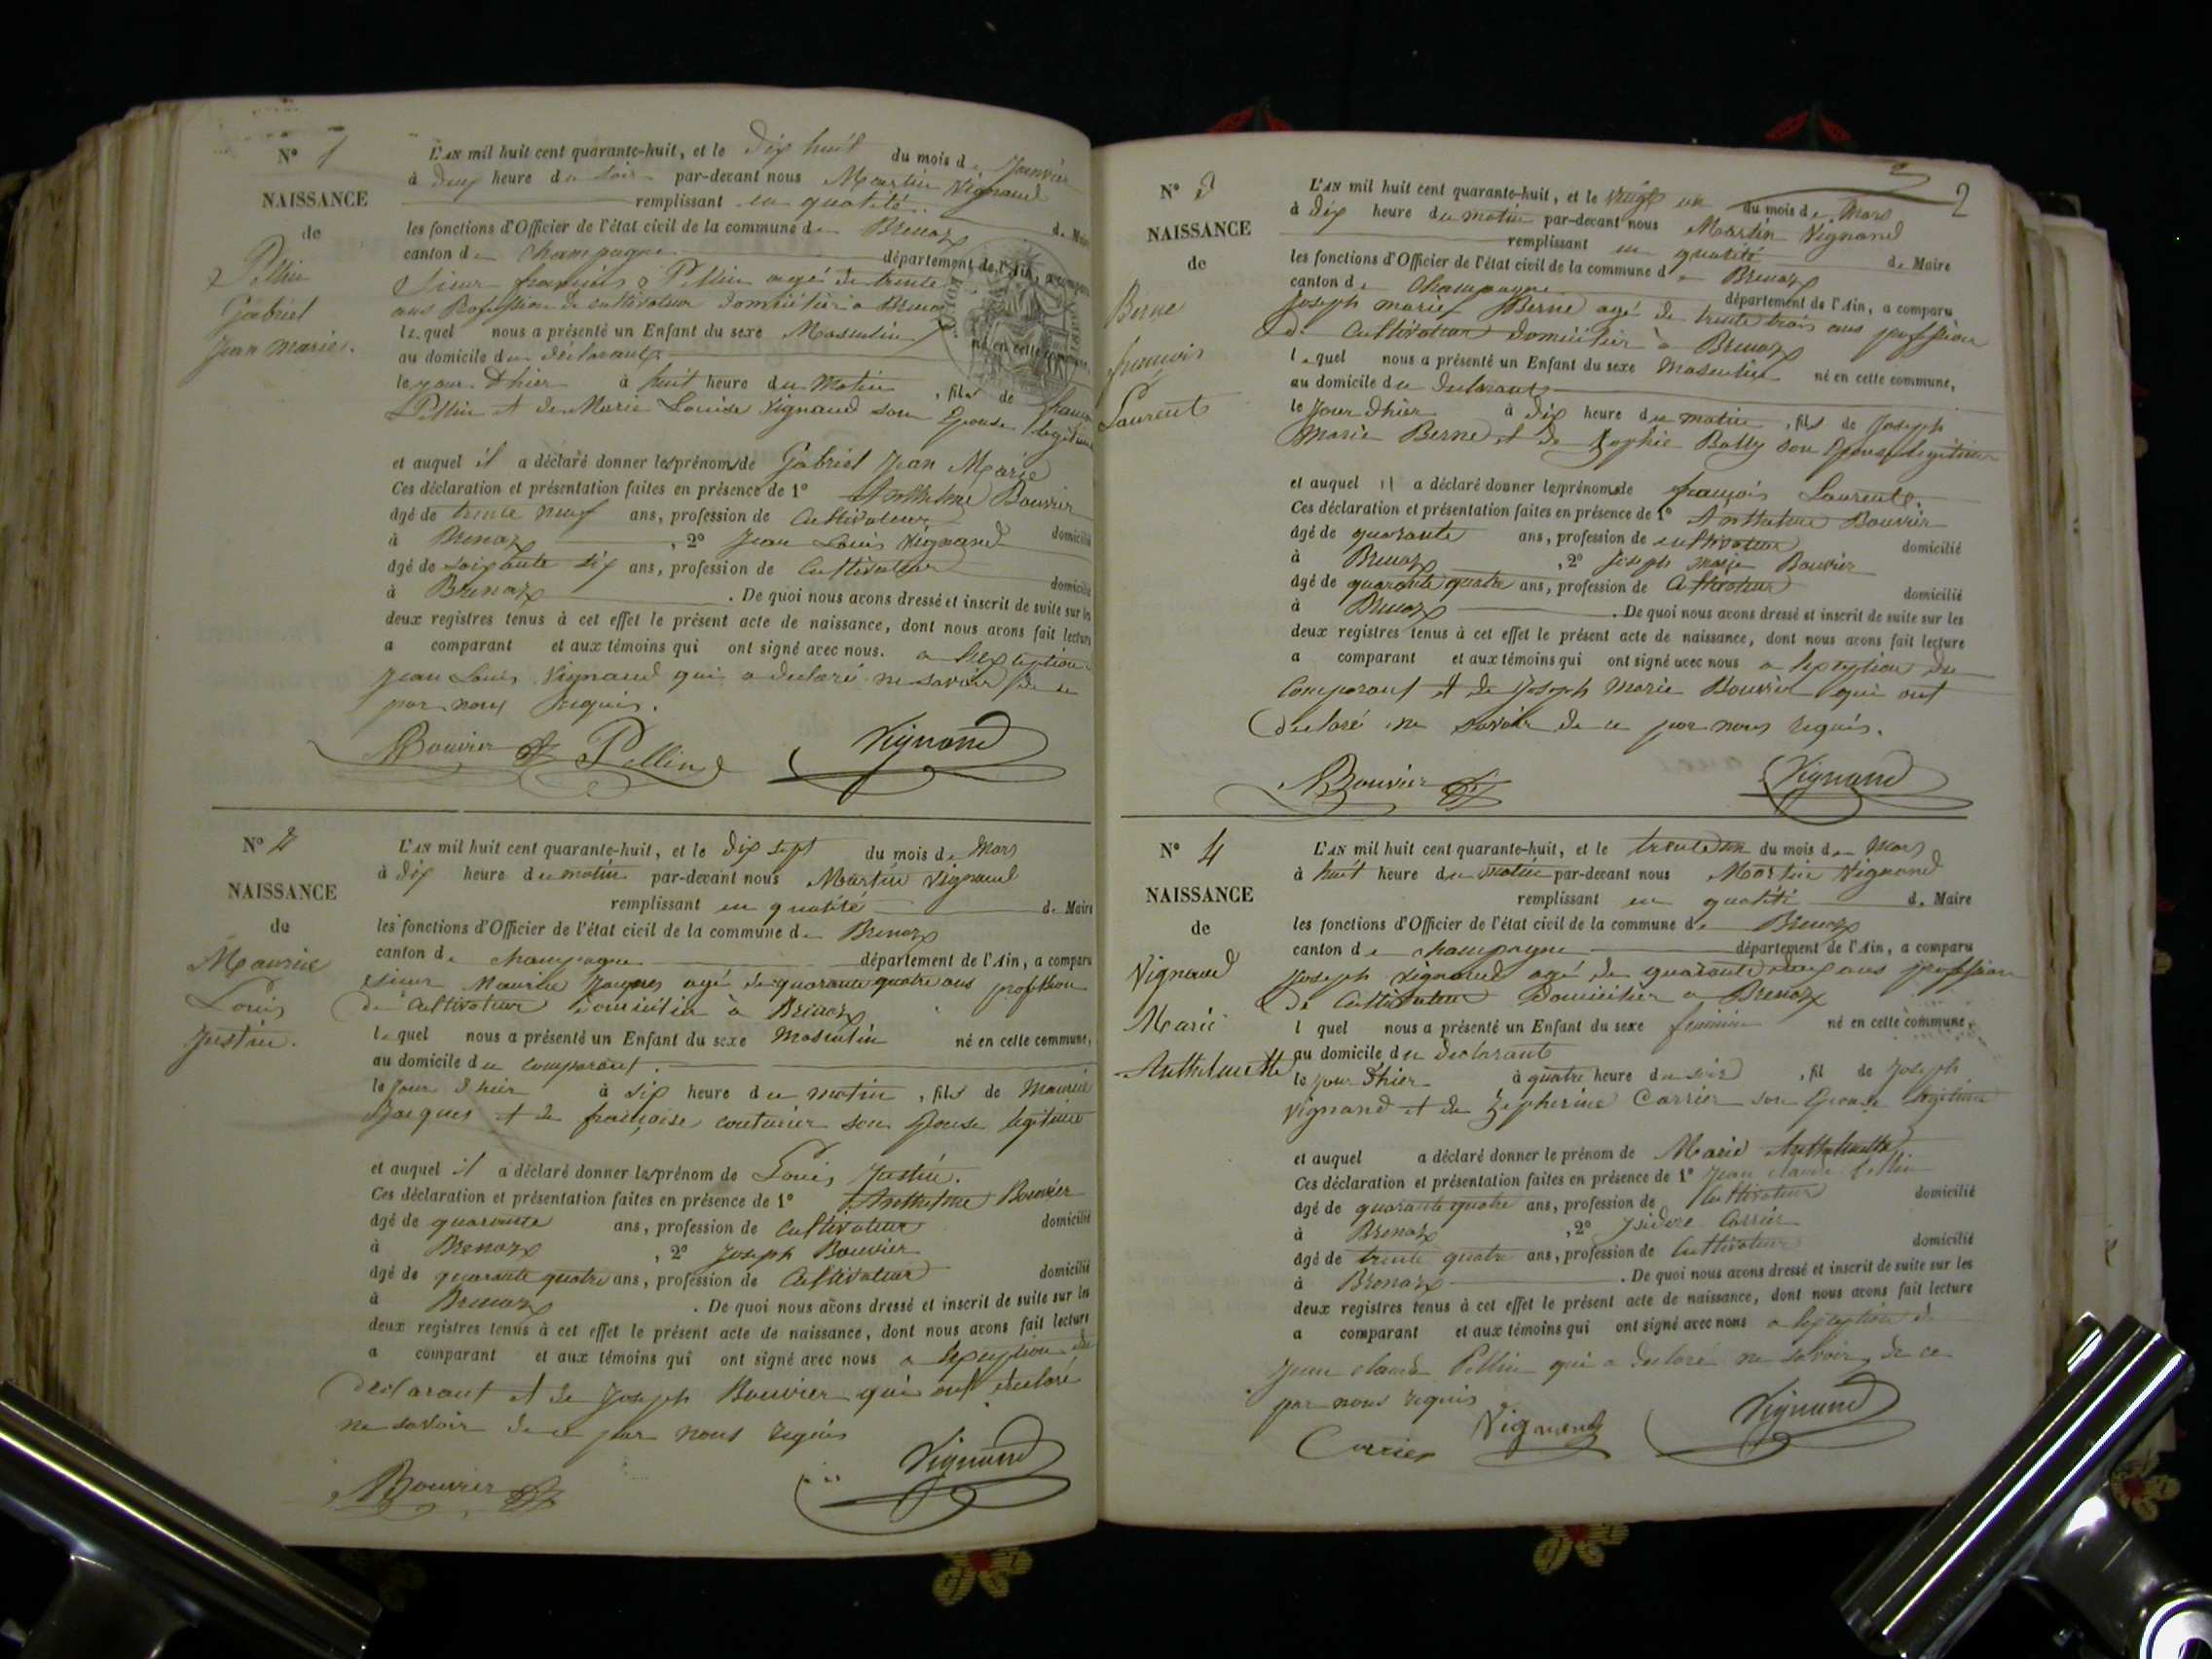 N° 1
NAISSANCE
de
Pellin
Gabriel
Jean Marie.
L'AN mil huit cent quarante-huit, et le dix huit du mois de Janvier
à deux heure du soir par-devant nous Martin Vignand
remplissant en qualité de Maire
les fonctions d'Officier de l'état civil de la commune de Brenaz
canton de Champagne département de l'Ain, a comparu
sieur françois Pellin agé de trente
ans Profession de cultivateur domicilier a Brenaz
lequel nous a présenté un Enfant du sexe Masculin né en cette commune,
au domicile du déclarant
le jour d'hier à huit heure du matin, fils de
Pellin et de Marie Louise Vignand son Epouse legitime
et auquel il a déclaré donner les prénoms de Gabriel Jean Marie
Ces déclaration et présentation faites en présence de 1° Anthelme Bouvier
âgé de trente neuf ans, profession de Cultivateur domicilié
à Brenaz, 2° Jean Louis Vignand
âgé de soixante six ans, profession de Cultivateur domicilié
à Brenaz. De quoi nous avons dressé et inscrit de suite sur les
deux registres tenus à cet effet le présent acte de naissance, dont nous avons fait lecture
a comparant et aux témoins qui ont signé avec nous. a l'exception
Jean Louis Vignand qui a declaré ne savoir de ce
par nous requis.
Bouvier Pellin Vignand
N° 2
NAISSANCE
de
Maurice
Louis
Justin.
L'AN mil huit cent quarante-huit, et le dix sept du mois de Mars
à dix heure du matin par-devant nous Martin Vignand
remplissant en qualité de Maire
les fonctions d'Officier de l'état civil de la commune de Brenaz
canton de Champagne département de l'Ain, a comparu
sieur Maurice Jacques agé de quarante quatre ans profession
de Cultivateur domicilier à Brenaz
lequel nous a présenté un Enfant du sexe Masculin né en cette commune,
au domicile du comparant.
le jour d'hier à six heure du matin, fils de Maurice
Jacques et de françoise couturier son Epouse legitime
et auquel il a déclaré donner les prénom de Louis Justin.
Ces déclaration et présentation faites en présence de 1° Anthelme Bouvier
âgé de quarante ans, profession de Cultivateur domicilié
à Brenaz, 2° Joseph Bouvier
âgé de quarante quatre ans, profession de Cultivateur domicilié
à Brenaz. De quoi nous avons dressé et inscrit de suite sur les
deux registres tenus à cet effet le présent acte de naissance, dont nous avons fait lecture
a comparant et aux témoins qui ont signé avec nous a l'exception du
declarant et de Joseph Bouvier qui ont declaré
ne savoir de ce par nous requis
Bouvier Vignand
2
N° 3
NAISSANCE
de
Berne
françois
Laurent
L'AN mil huit cent quarante-huit, et le vingt un du mois de Mars
à dix heure du matin par-devant nous Martin Vignand
remplissant en qualité de Maire
les fonctions d'Officier de l'état civil de la commune de Brenaz
canton de Champagne département de l'Ain, a comparu
Joseph marie Berne agé de trente trois ans profession
de Cultivateur domicilier à Brenaz
lequel nous a présenté un Enfant du sexe Masculin né en cette commune,
au domicile du declarant
le Jour d'hier à dix heure du matin, fils de Joseph
Marie Berne et de Sophie Bally son Epouse legitime
et auquel il a déclaré donner les prénoms de françois Laurent.
Ces déclaration et présentation faites en présence de 1° Anthelme Bouvier
âgé de quarante ans, profession de cultivateur domicilié
à Brenaz, 2° Joseph Marie Bouvier
âgé de quarante quatre ans, profession de Cultivateur domicilié
à Brenaz. De quoi nous avons dressé et inscrit de suite sur les
deux registres tenus à cet effet le présent acte de naissance, dont nous avons fait lecture
a comparant et aux témoins qui ont signé avec nous a l'exception du
Comparant et de Joseph Marie Bouvier qui ont
declaré ne savoir de ce par nous requis.
Bouvier Vignand
N° 4
NAISSANCE
de
Vignand
Marie
Anthelmette
L'AN mil huit cent quarante-huit, et le trente un du mois de Mars
à huit heure du matin par-devant nous Martin Vignand
remplissant en qualité de Maire
les fonctions d'Officier de l'état civil de la commune de Brenaz
canton de Champagne département de l'Ain, a comparu
Joseph Vignand agé de quarante deux ans profession
de Cultivateur domicilier a Brenaz
l quel nous a présenté un Enfant du sexe feminin né en cette commune,
au domicile du declarant
le jour d'hier à quatre heure du soir, fil de Joseph
Vignand et de Zepherine Carrier son Epouse legitime
et auquel a déclaré donner le prénom de Marie Anthelmette
Ces déclaration et présentation faites en présence de 1° Jean claude Pellin
âgé de quarante quatre ans, profession de Cultivateur domicilié
à Brenaz, 2° Isidore Carrier
âgé de trente quatre ans, profession de Cultivateur domicilié
à Brenaz. De quoi nous avons dressé et inscrit de suite sur les
deux registres tenus à cet effet le présent acte de naissance, dont nous avons fait lecture
a comparant et aux témoins qui ont signé avec nous a l'exception de
Jean claude Pellin qui a declaré ne savoir de ce
par nous requis
Carrier Vignand Vignand